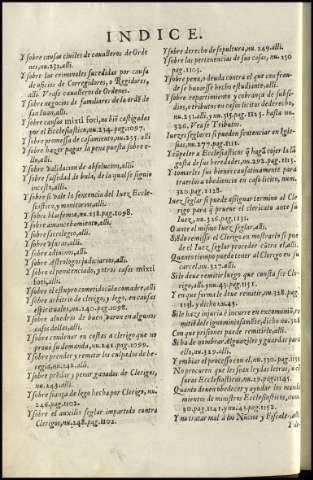 INDICE.
Y sobre causas civiles de caualleros de Orde
nes, nu.231. alli.
Y sobre las criminales sucedidas por causa
de oficios de Corregidores, o Regidores,
alli. Verse caualleros de Ordenes.
Y sobre negocios de familiares de la ordē de
san Iuan, alli.
Y sobre causas mixti fori, no biē castigadas
por el Eclesiastico, nu.234. pag.1097.
Y sobre promessa de casamiento, nu.235. alli
Y sobre hazer pagar la pena puesta sobre e-
llo, alli.
Y sobre validacion de absolucion, alli.
Y sobre falsedad de bula, de la qual se siguie
incesto, alli.
Y sobre si vale la sentencia del Iuez Eccle-
siastico, y monitorias, alli.
Y sobre blasfemia, nu.238. pag.1098.
Y sobre amancebamiento, alli.
Y sobre sacrilegio, alli.
Y sobre vsuras, alli.
Y sobre adulterio, alli.
Y sobre Astrologos judiciarios, alli.
Y sobre el penitenciado, y otros casos mixti
fori, alli.
Y sobre el estupro cometido cō la comadre, alli
Y sobre arbitrio de clerigo, y lego, en causas
espirituales, nu.240. pag.1098.
Y sobre aluedrio de buen varon en algunos
casos dellas, alli.
Y sobre condenar en costas a clerigo que no
prouò su demanda, nu.242. pag.1099.
Y sobre prender y remitir los culpados de he-
regia, nu.242. alli.
Y sobre prēdar y penar ganados de Clerigo,
nu.243. alli.
Y sobre fiança de lego hecha por Clerigo, nu.
246. pag.1102.
Y sobre el auxilio seglar impartido contra
Clerigos, nu.248. pag.1102.
Y sobre derecho de sepultura, nu.249. alli.
Y sobre las pertenencias de sus casas, nu.250
pag.1103.
Y sobre pena, o deuda contra el que en frau-
de se huuiesse hecho estudiante, alli.
Y sobre repartimiento y cobrança de subsi-
dios, e tributos en casos licitos de derecho,
nu.251. alli, y nu.315. pag.1123. hasta nu.
326. Verase Tributos.
Iuezes seglares si pueden sentenciar en Igle-
sias, nu.279. pag.1111.
Y cōpeler a Ecclesiasticos q̄ hagā copia la lā
gosta de sus heredades, nu.292. pag.1115.
Y tomarles sus bienes casi fatigandolos para
traerlos a obediencia en caso licito, num.
320. pag.1128.
Iuez seglar si puede assignar termino al Cle
rigo para q̄ prueue el clericato ante su
Iuez, nu.326. pag.1131.
O ante el mismo Iuez seglar, alli.
Si se remisse el Clerigo en mostrarlo si pue
de el Iuez seglar proceder cōtra el, alli.
Quanto tiempo puede tener al Clerigo en su
carcel, nu.327. alli.
Si le deue remitir luego que consta ser Cle-
rigo, alli, y nu.43. pag.1151.
Y en que forma le deue remitir, nu.328. pag
1132. y dicho nu.43.
Si le haze injuria è incurre en excomuniō, re-
mitiēdole ignominiosamēte, dicho nu.328.
Con que prisiones puede remitirle, alli.
Si ha de nombrar Alguaziles y guardas para
ello, nu.329. alli.
Y embiar el processo con el, nu.330. pag.1133
No procuren que les sean leydas letras, ni cē
suras Ecclesiasticas, nu.29. pag.1145.
Quando deuen obedecer y ayudar los manda
mientos de ministros Ecclesiasticos, num.
30. pag.1147. y nu.43. pag.1152.
Y no tratar mal a los Nuncios y Fiscales, alli